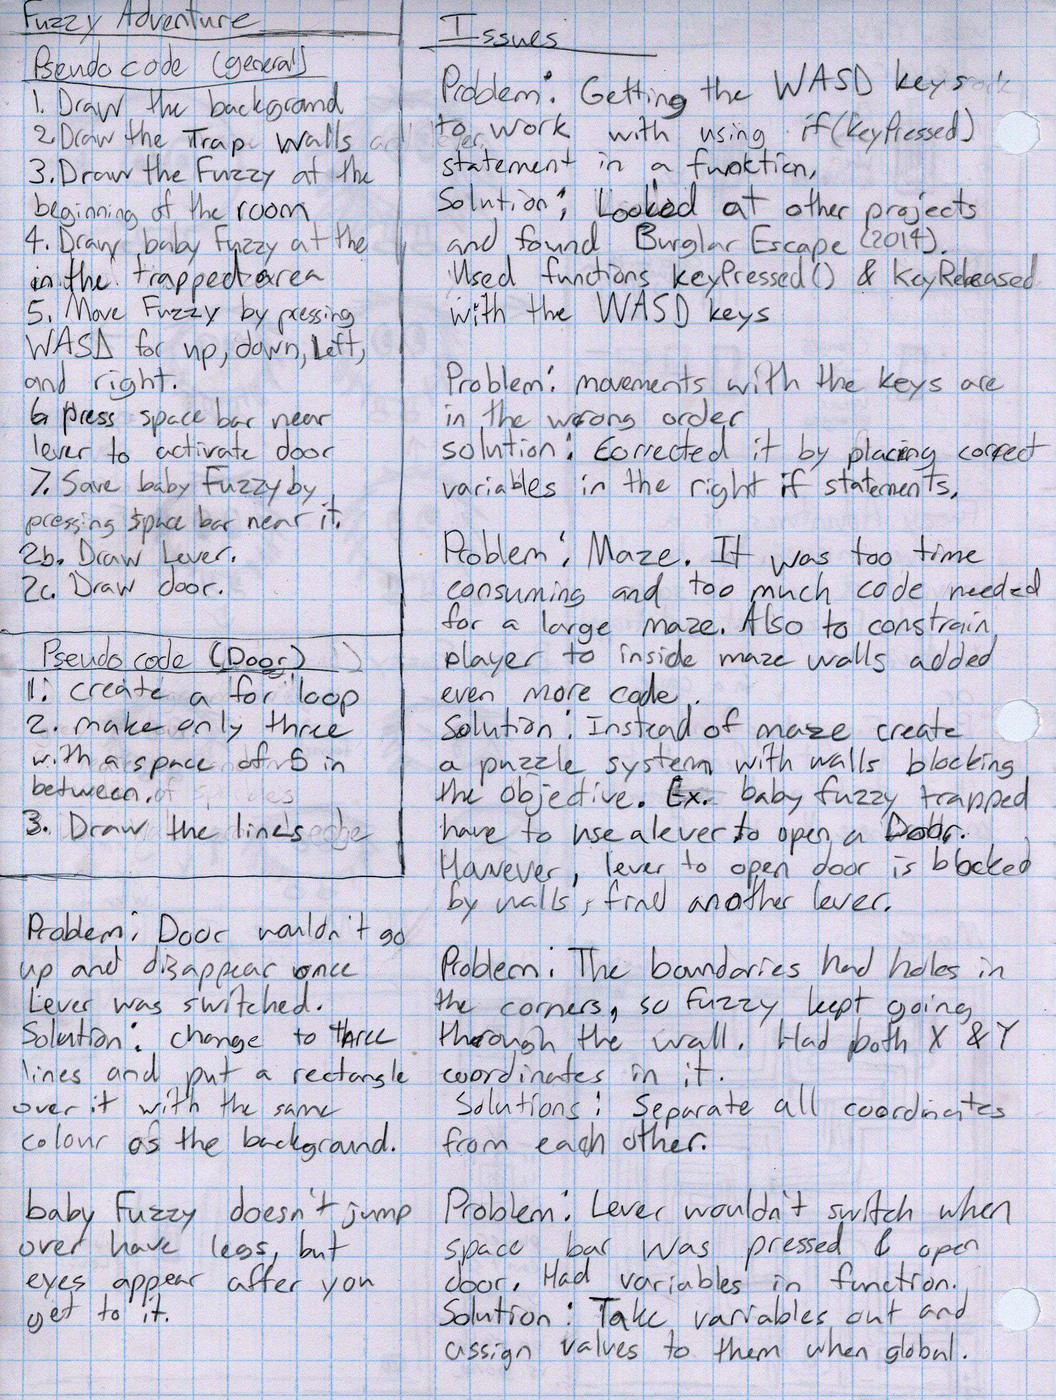 Fuzzy Adventure
Pseudo code (general)
1. Draw the background
2. Draw the Trap Walls
3. Draw the Fuzzy at the
beginning of the room
4. Draw baby Fuzzy at the
in the trapped area
5. Move Fuzzy by pressing
WASD for up, down, left,
and right.
6. press space bar near
lever to activate door
7. Save baby Fuzzy by
pressing space bar near it.
2b. Draw Lever.
2c. Draw door.
Pseudo code (Door)
1. create a for loop
2. make only three
with a space of 5 in
between.
3. Draw the lines
Problem: Door wouldn't go
up and disappear once
Lever was switched.
Solution: change to three
lines and put a rectangle
over it with the same
colour as the background.
baby Fuzzy doesn't jump
over have legs, but
eyes appear after you
get to it.
Issues
Problem: Getting the WASD keys
to work with using if(keyPressed)
statement in a function.
Solution: Looked at other projects
and found Burglar Escape (2014).
Used functions keyPressed() & KeyReleased
with the WASD keys
Problem: movements with the keys are
in the wrong order
solution: Corrected it by placing correct
variables in the right if statements.
Problem: Maze. It was too time
consuming and too much code needed
for a large maze. Also to constrain
player to inside maze walls added
even more code.
Solution: Instead of maze create
a puzzle system with walls blocking
the objective. Ex. baby fuzzy trapped
have to use a lever to open a Door.
However, lever to open door is blocked
by walls, find another lever.
Problem: The boundaries had holes in
the corners, so Fuzzy kept going
through the wall. Had both X & Y
coordinates in it.
Solutions: Separate all coordinates
from each other.
Problem: Lever wouldn't switch when
space bar was pressed & open
door. Had variables in function.
Solution: Take variables out and
assign values to them when global.